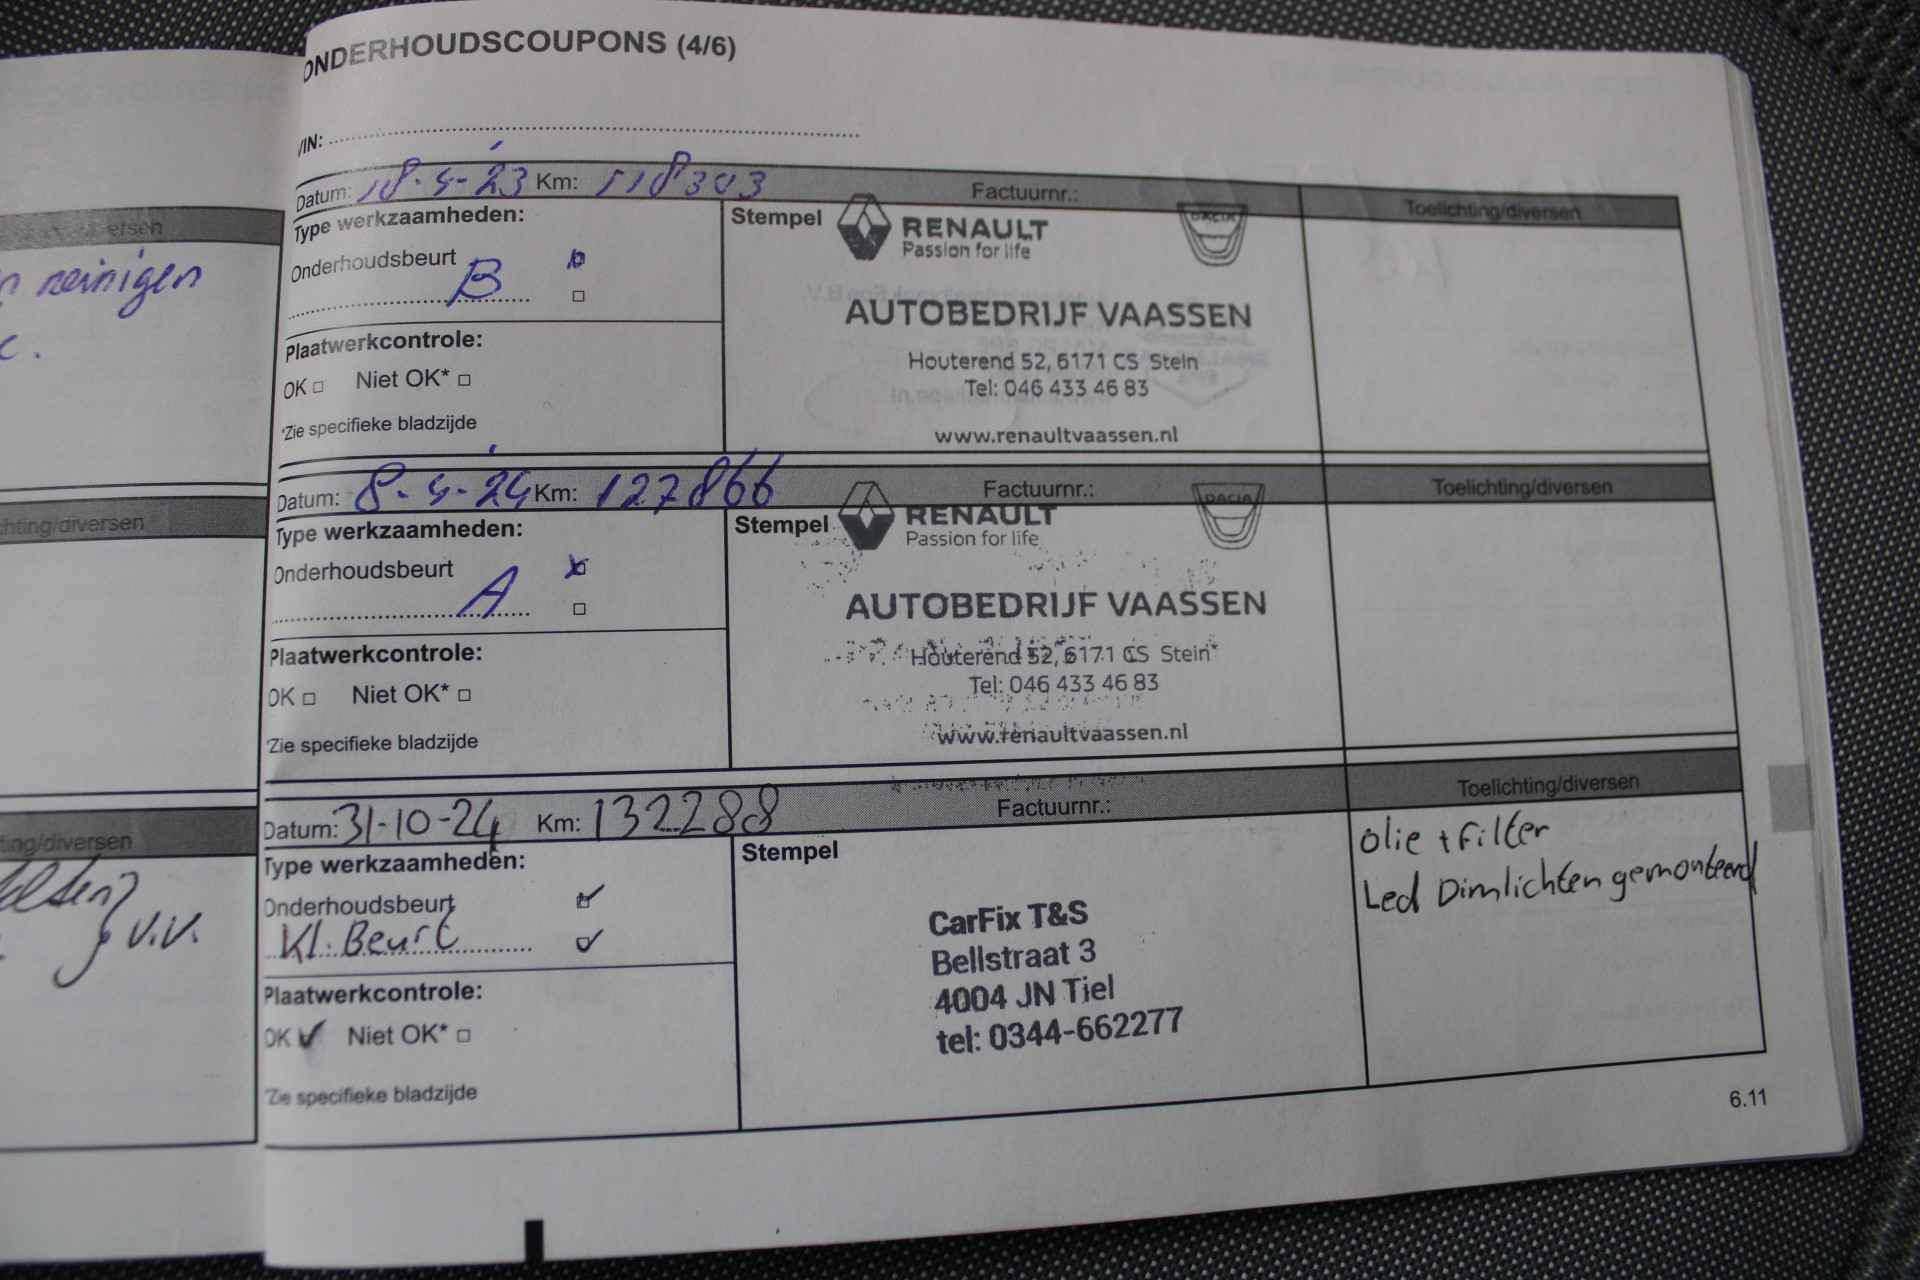 ersen
n reinigen
c.
chting/diversen
ting/diversen
v.v.
ONDERHOUDSCOUPONS (4/6)
VIN:
Datum: 18-4-'23 Km: 118303 Factuurnr.: Toelichting/diversen
Type werkzaamheden:
Onderhoudsbeurt
B
Plaatwerkcontrole:
OK □ Niet OK* □
*Zie specifieke bladzijde
Stempel
RENAULT
Passion for life
DACIA
AUTOBEDRIJF VAASSEN
Houterend 52, 6171 CS Stein
Tel: 046 433 46 83
www.renaultvaassen.nl
Datum: 8-4-'24 Km: 127866 Factuurnr.: Toelichting/diversen
Type werkzaamheden:
Onderhoudsbeurt
A
Plaatwerkcontrole:
OK □ Niet OK* □
*Zie specifieke bladzijde
Stempel
RENAULT
Passion for life
DACIA
AUTOBEDRIJF VAASSEN
Houterend 52, 6171 CS Stein
Tel: 046 433 46 83
www.renaultvaassen.nl
Datum: 31-10-24 Km: 132288 Factuurnr.: Toelichting/diversen
Type werkzaamheden:
Onderhoudsbeurt
Kl. Beurt
Plaatwerkcontrole:
OK ✓ Niet OK* □
*Zie specifieke bladzijde
Stempel
CarFix T&S
Bellstraat 3
4004 JN Tiel
tel: 0344-662277
olie + filter
Led Dimlichten gemonteerd
6.11